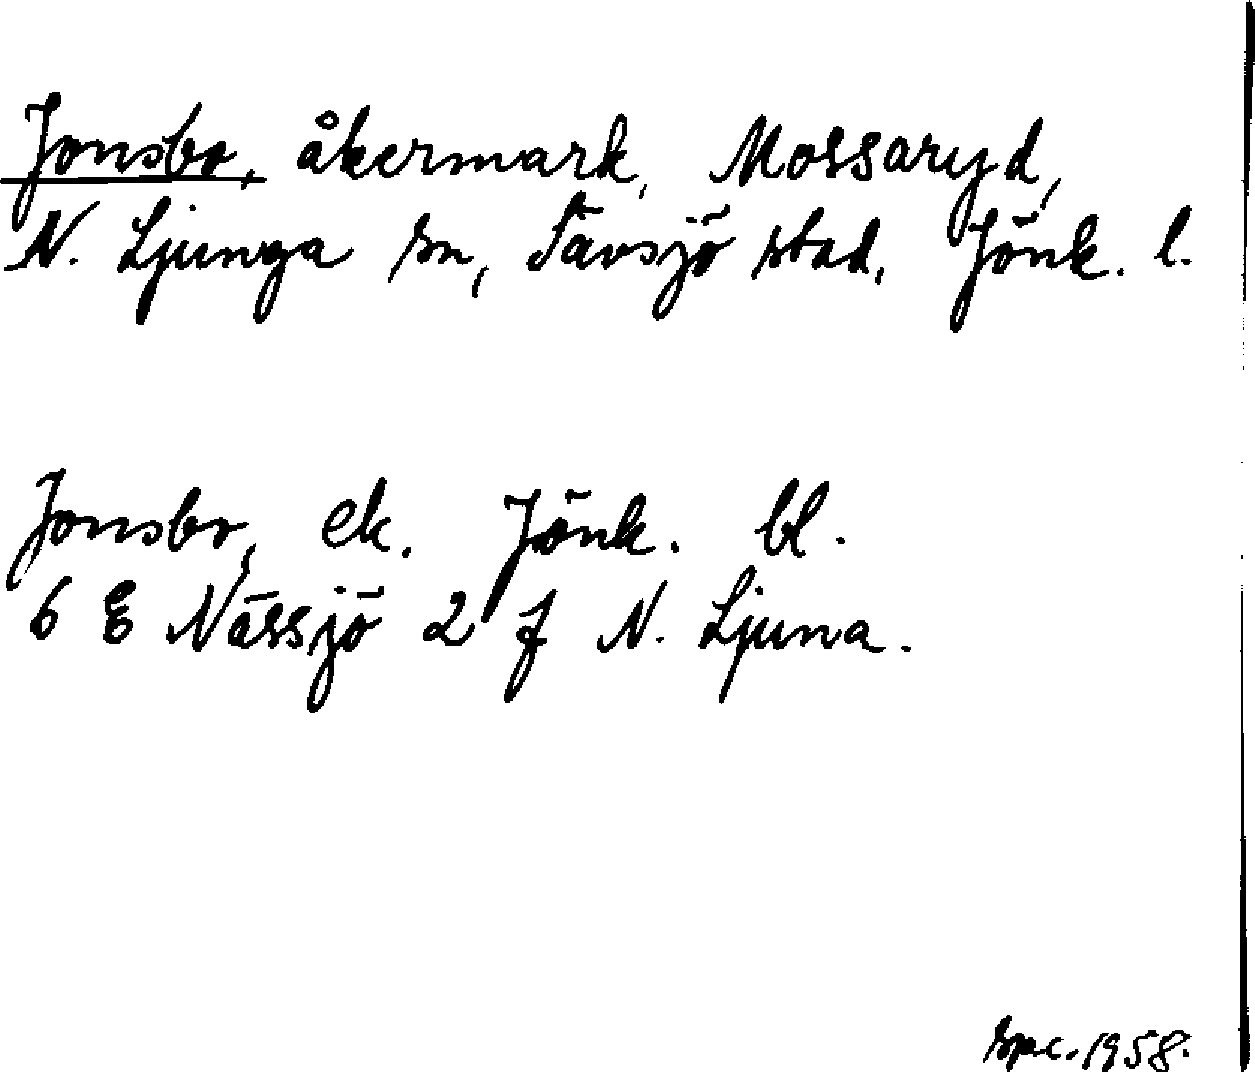 Jonsbo, åkermark, Mossaryd,
N. Ljunga sn, Sävsjö stad, Jönk. l.
Jonsbo, ek. Jönk. bl.
6 E Nässjö 2 f N. Ljuna.
spc. 1958.